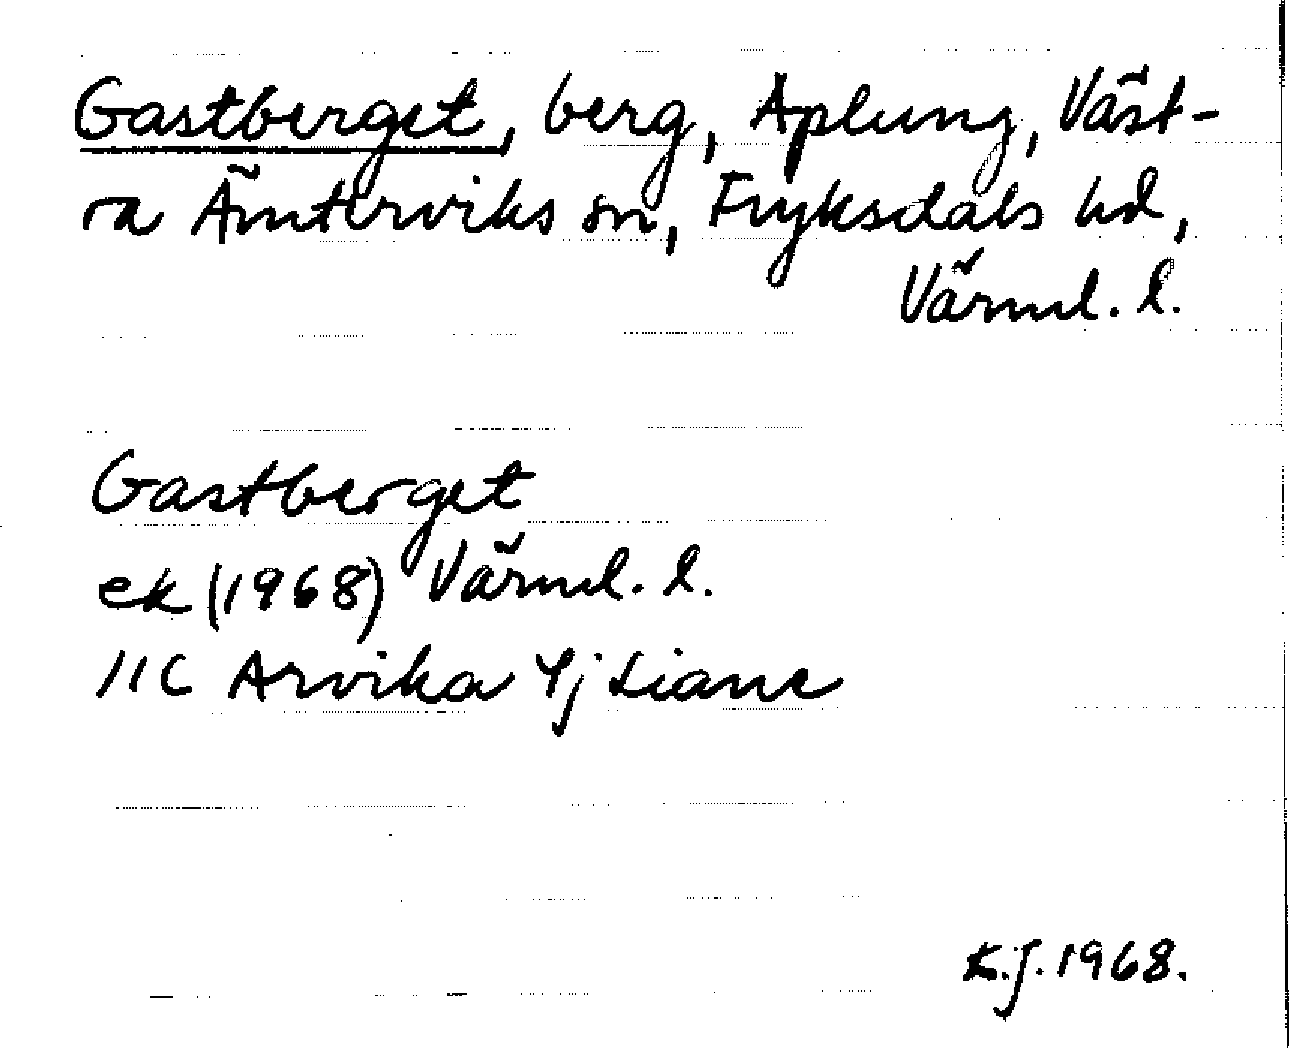 Gastberget, berg, Aplung, Väst-
ra Ämterviks sn, Fryksdals hd,
Värml. l.
Gastberget
ek (1968) Värml. l.
11C Arvika 4j Liane
K.J. 1968.